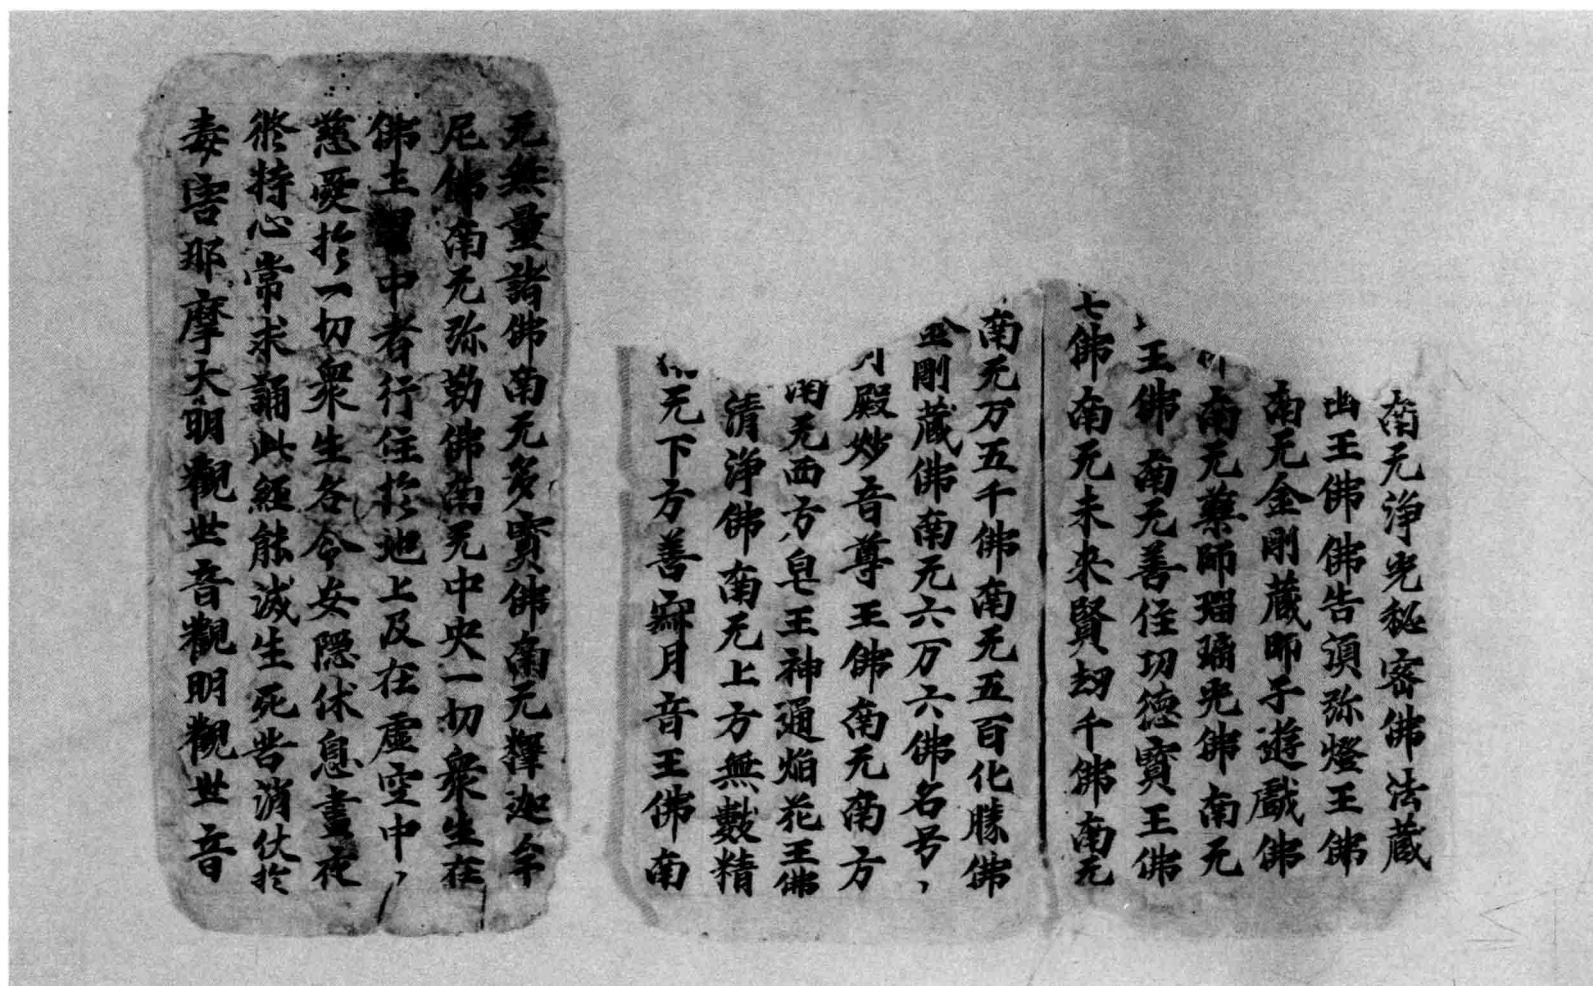 南无淨光秘密佛法藏
王佛佛告湏弥燈王佛
南无金剛藏師子遊戲佛
南无藥師瑠璃光佛南无
王佛南无善住功德寶王佛
七佛南无未来賢劫千佛南无
南无万五千佛南无五百化勝佛
金剛藏佛南无六万六佛名号
月殿妙音尊王佛南无南方
南无西方皂王神通焰花王佛
清淨佛南无上方無數精
无下方善寂月音王佛南
无無量諸佛南无多寶佛南无釋迦牟
尼佛南无弥勒佛南无中央一切衆生在
佛土中者行住於地上及在虛空中
慈憂於一切衆生各令安隱休息晝夜
修持心常求誦此經能滅生死苦消伏於
毒害那摩大明觀世音觀明觀世音